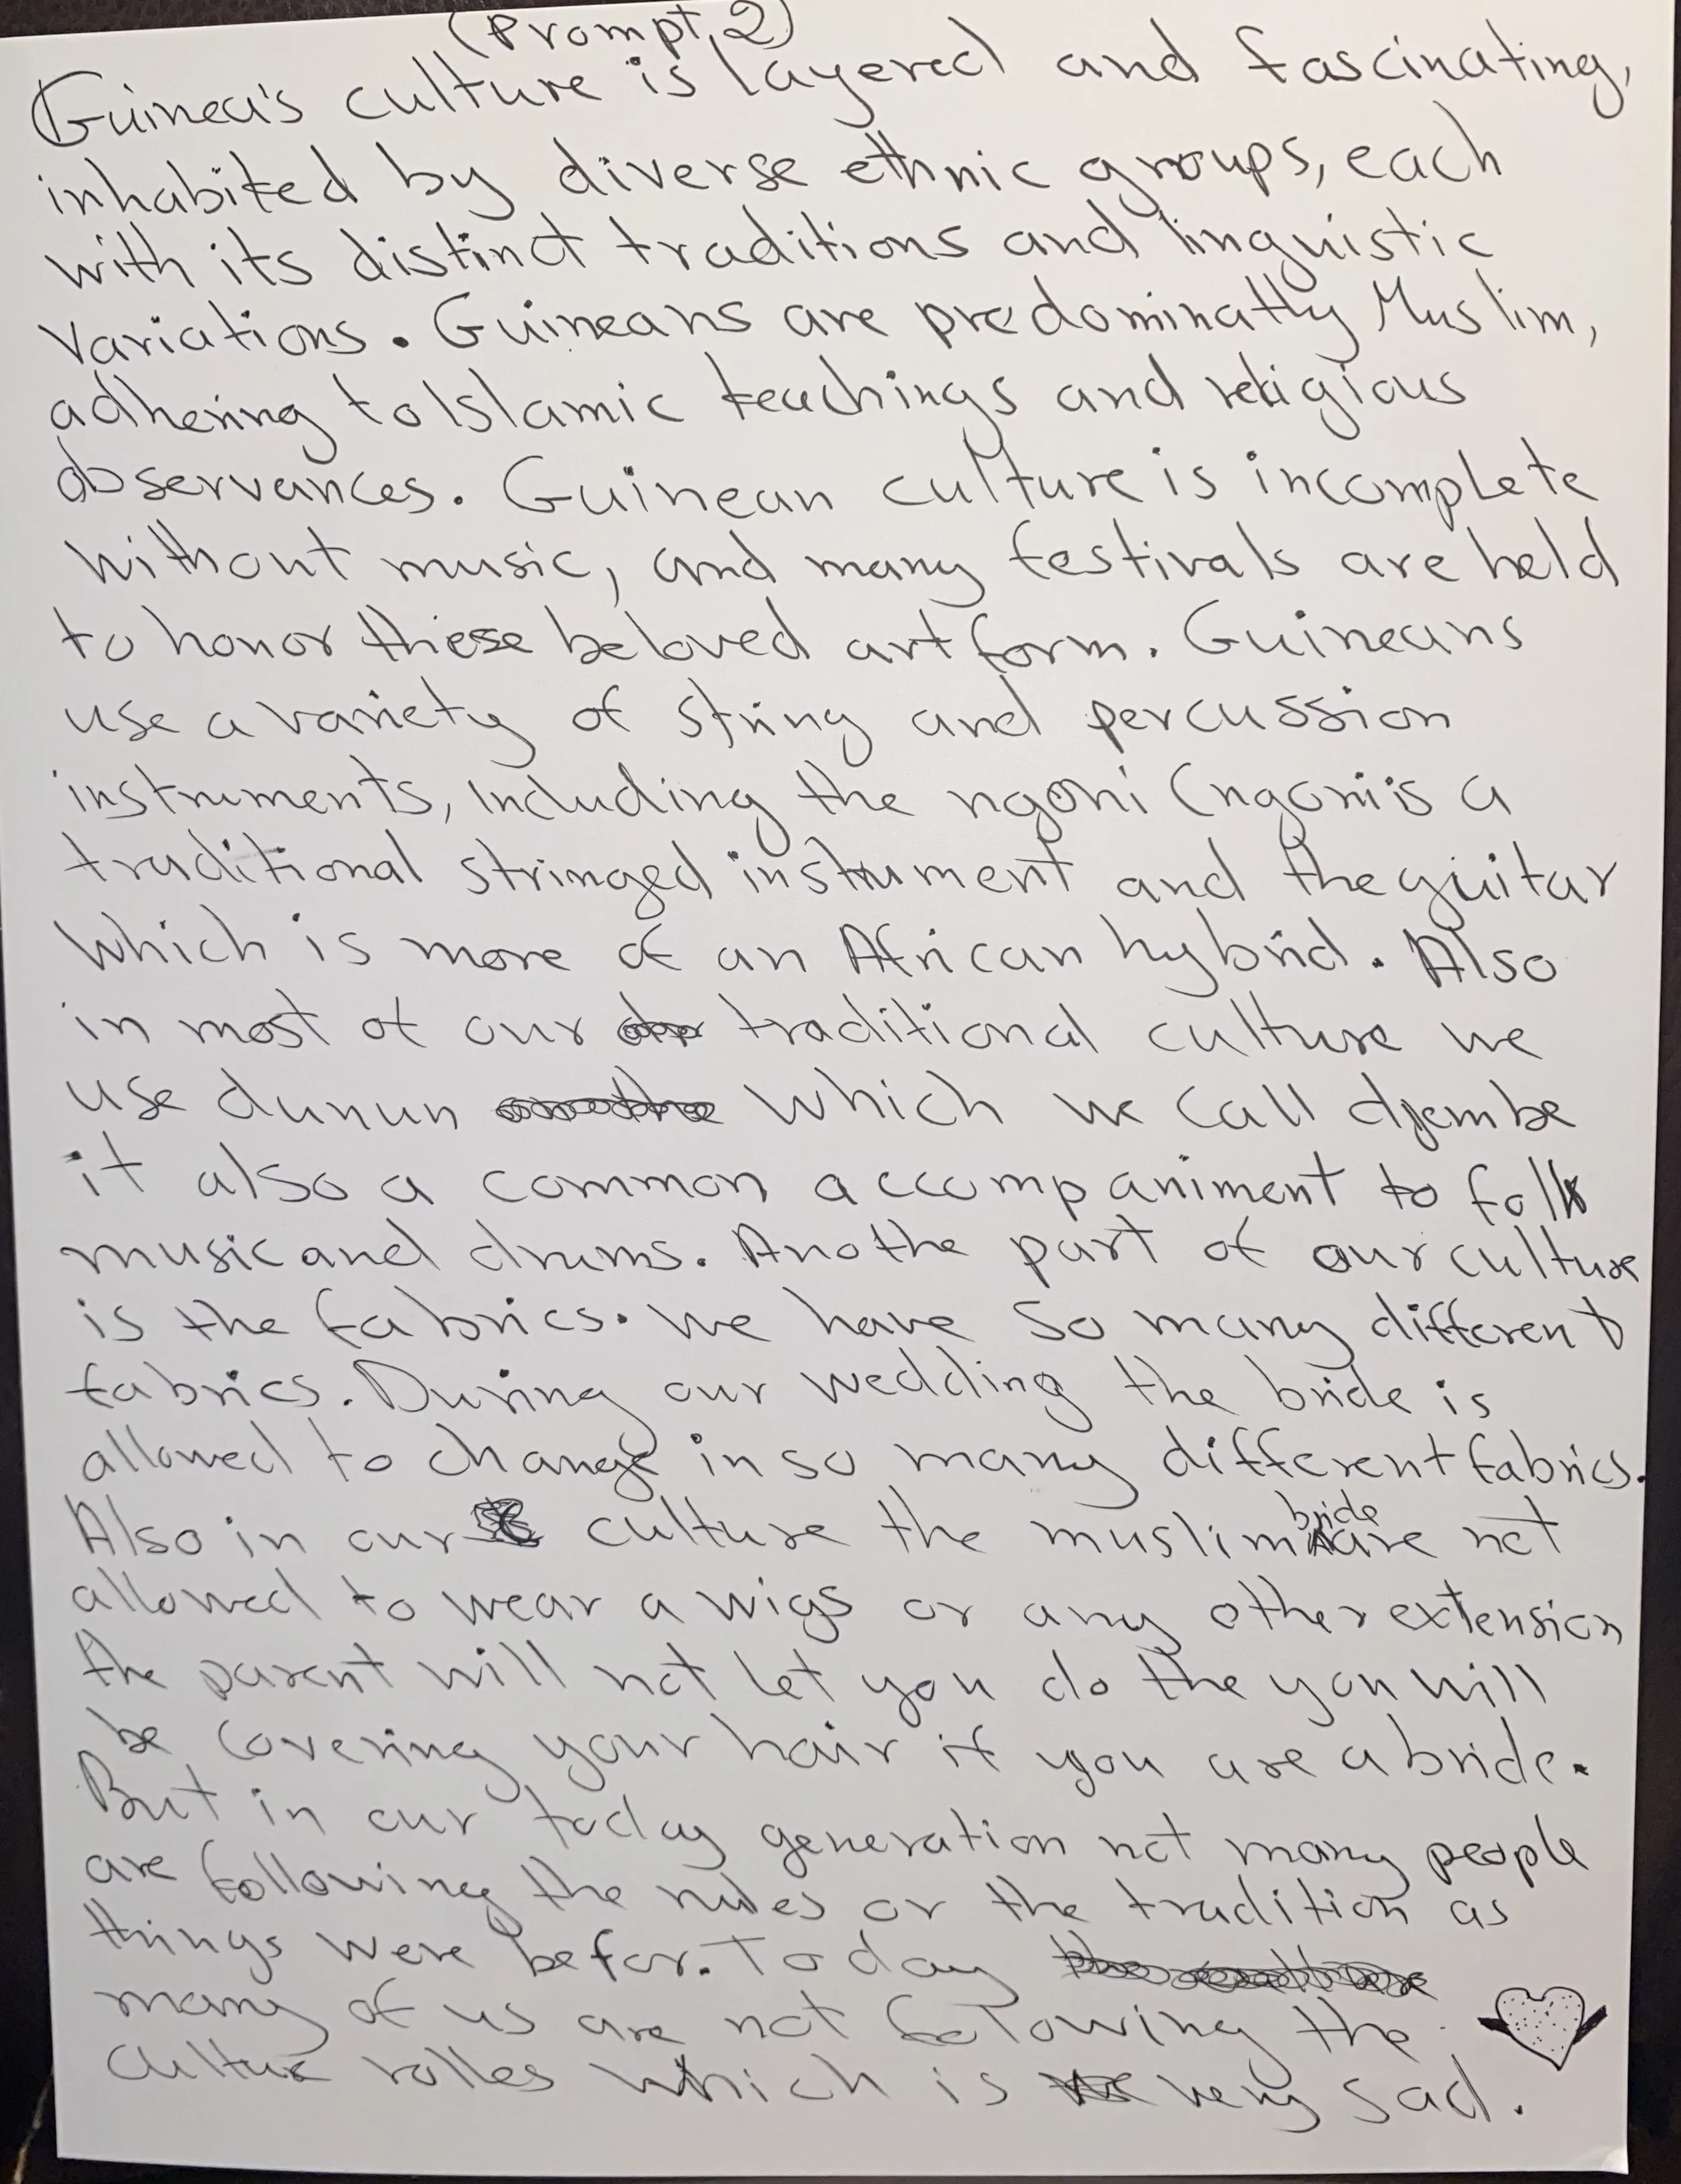 (Prompt, 2)
Guinea's culture is layered and fascinating,
inhabited by diverse ethnic groups, each
with its distinct traditions and linguistic
variations. Guineans are predominatly Muslim,
adhering to Islamic teachings and religious
observances. Guinean culture is incomplete
without music, and many festivals are held
to honor these beloved art form. Guineans
use a variety of string and percussion
instruments, including the ngoni (ngoni is a
traditional stringed instrument and the guitar
which is more of an African hybrid. Also
in most of our traditional culture we
use dunun which we call djembe
it also a common accompaniment to folk
music and drums. Anothe part of our culture
is the fabrics. we have so many different
fabrics. During our wedding the bride is
allowed to change in so many different fabrics.
Also in our culture the muslim bride are not
allowed to wear a wigs or any other extension
the parent will not let you do the you will
be covering your hair if you are a bride.
But in our today generation not many people
are following the rules or the tradition as
things were befor. Today
many of us are not folowing the
culture rolles which is very sad.